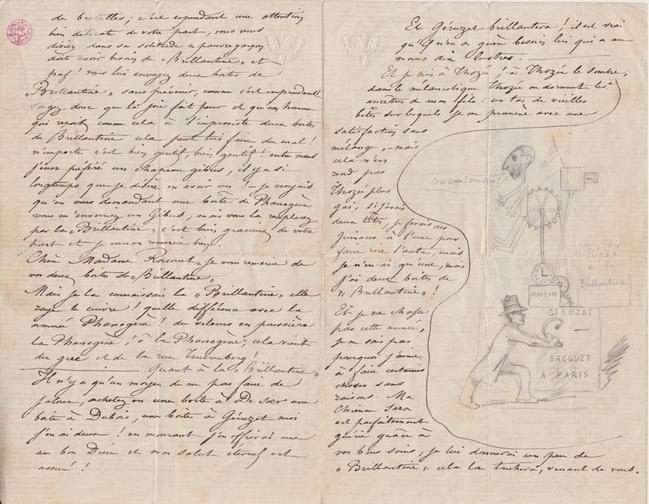 de bretelles ; c'est cependant une attention
bien délicate de votre part, vous vous
dans sa solitude ce pauvre garçon
doit avoir besoin de « Brillantine » et
paf ! vous lui envoyez deux boites de
« Brillantine » sans prévenir, comme c'est imprudent !
donc que la joie fait peur et qu'un homme
qui reçoit comme cela à l'improviste deux boites
de Brillantine cela peut lui faire du mal !
n'importe c'est bien gentil, bien gentil ! entre nous
j'eus préféré un chapeau gibus, il y a si
longtemps que je désire en avoir un ! je croyais
qu'en vous demandant une boite de Phanogène
vous m'enverriez un Gibus, mais vous la remplacez
par la Brillantine, c'est bien gracieux de votre
part et je vous en remercie bien.
Chère Madame je vous remercie de
vos deux boites de Brillantine.
Mais je la connaissais la « Brillantine, elle
raye le cuivre ! quelle différence avec la
nommée Phanogène ! du velours en poussière
la Phanogène ! à la Phanogène, cela vient
du grec et de la rue
Quant à la « Brillantine »
Il n'y a qu'un moyen de ne pas faire de
jaloux, achetez en une boite à De
boite à Dubois, une boite à Géruzet moi
j'en ai deux ! en mourant j'en offrirai une
au bon Dieu et mon salut éternel est
assuré !
Et Géruzet brillantera ! il est vrai
qu'il n'en a guère besoin lui qui a au
moins dix lustres.
Et je suis à Thozée ! à Thozée le sombre,
dans le mélancolique Thozée où dorment les
ancêtres de mon fils : un tas de vieilles
bêtes sur lesquels je me promène avec une
satisfaction sans
mélange, mais
cela n'en
rend pas
Thozée plus
gai, si j'avais
deux têtes, je ferais des
grimaces à l'une pour
faire rire l'autre, mais
je n'en ai qu'une, mais
j'ai deux boites de
« Brillantine » !
Et je ne chasse
pas cette année,
je ne sais pas
pourquoi j'aime
à faire certaines
choses sans
raisons. Ma
Chienne Sara
est parfaitement
guérie grâce à
vos bons soins, je lui donnerai un peu de
« Brillantine » cela la touchera, venant de vous.
à
Brillantine
MAISON
GERUZET
BREGUET
A PARIS